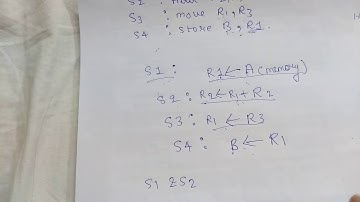 S3 : move R1, R3
S4 : store B, R1.
S1 : R1 ← A (memory)
S2 : R2 ← R1 + R2
S3 : R1 ← R3
S4 : B ← R1
S1 & S2